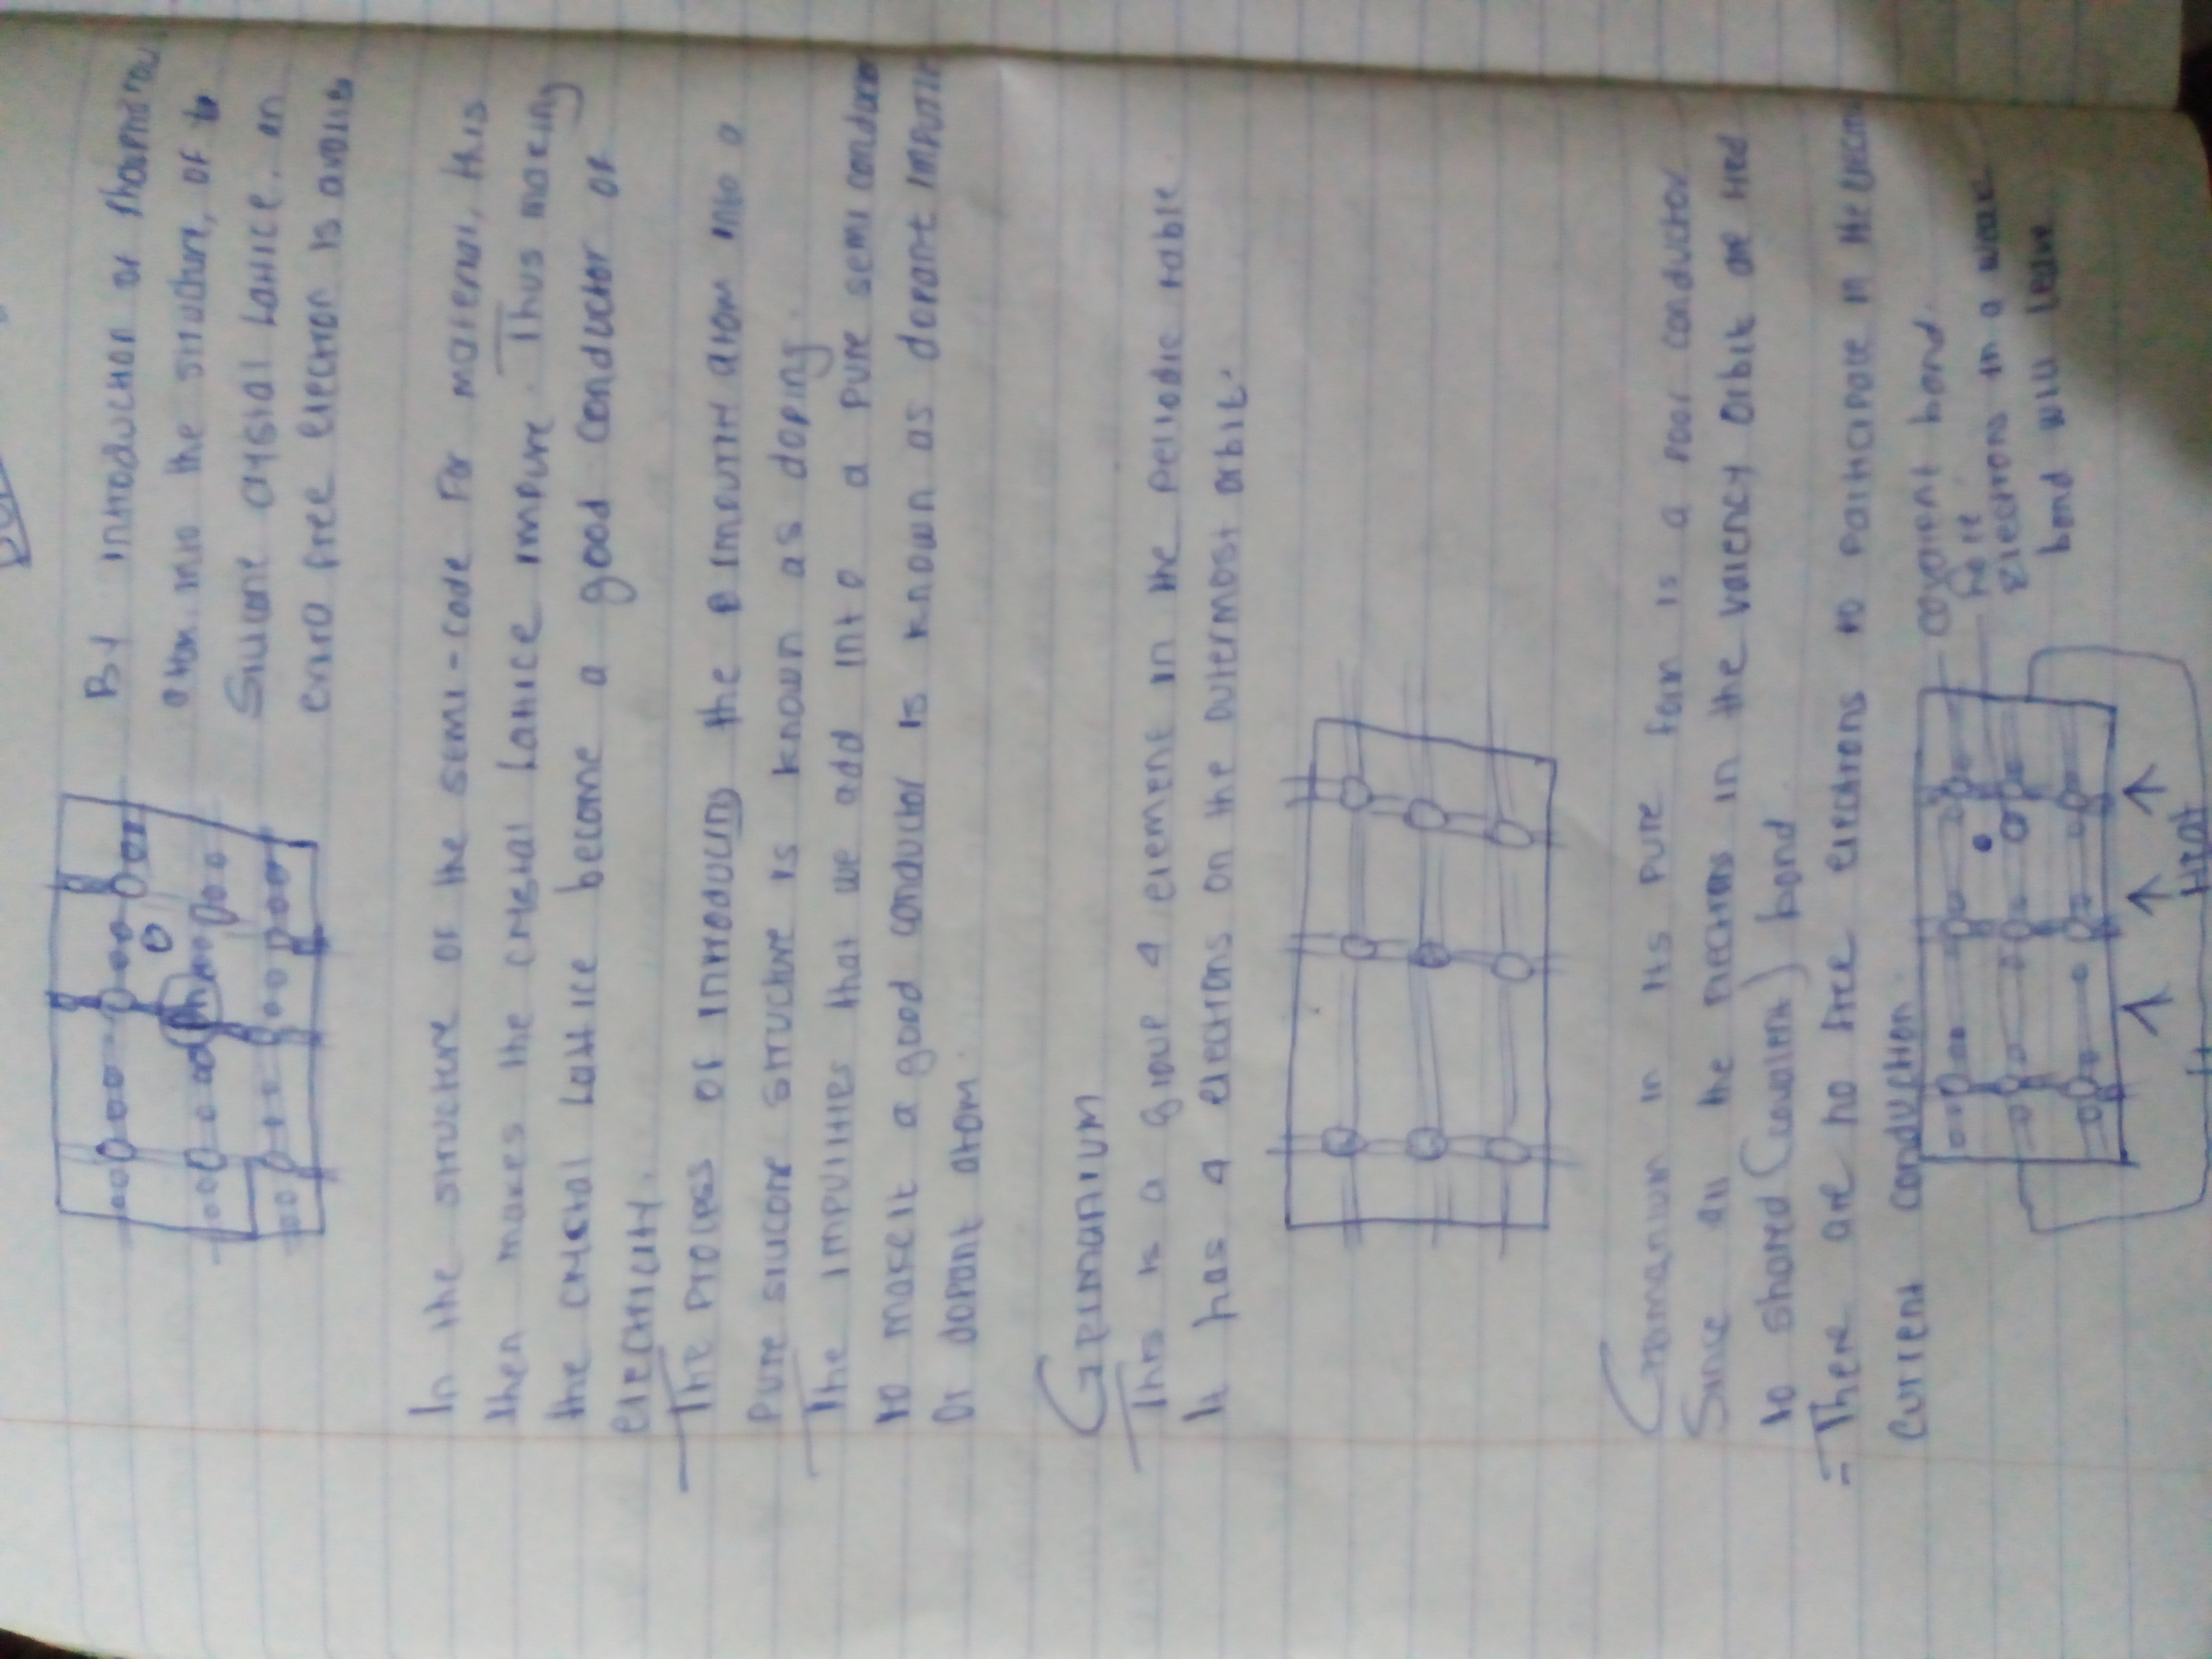 By introduction of Phosphorou
atom into the structure, of
Silicone crystal Lattice. an
extra free electron is
In the structure of the semi-code for material, this
then makes the crystal Lattice impure. Thus making
the crystal Lattice become a good conductor of
electricity.
The process of introducing the impurity atom into a
pure silicone structure is known as doping.
The impurities that we add into a pure semi
to make it a good conductor is known as dopant
or dopant atom.
Germanium
This is a group 4 element in the periodic table
It has 4 electrons on the outermost orbit.
Germanium in its pure form is a poor conductor
Since all the electrons in the valency orbit are tied
to shared (covalent) bond
= There are no free electrons to participate in the
current conduction.
Ph
covalent bond.
hole
Electrons in a weak
bond will leave
Heat